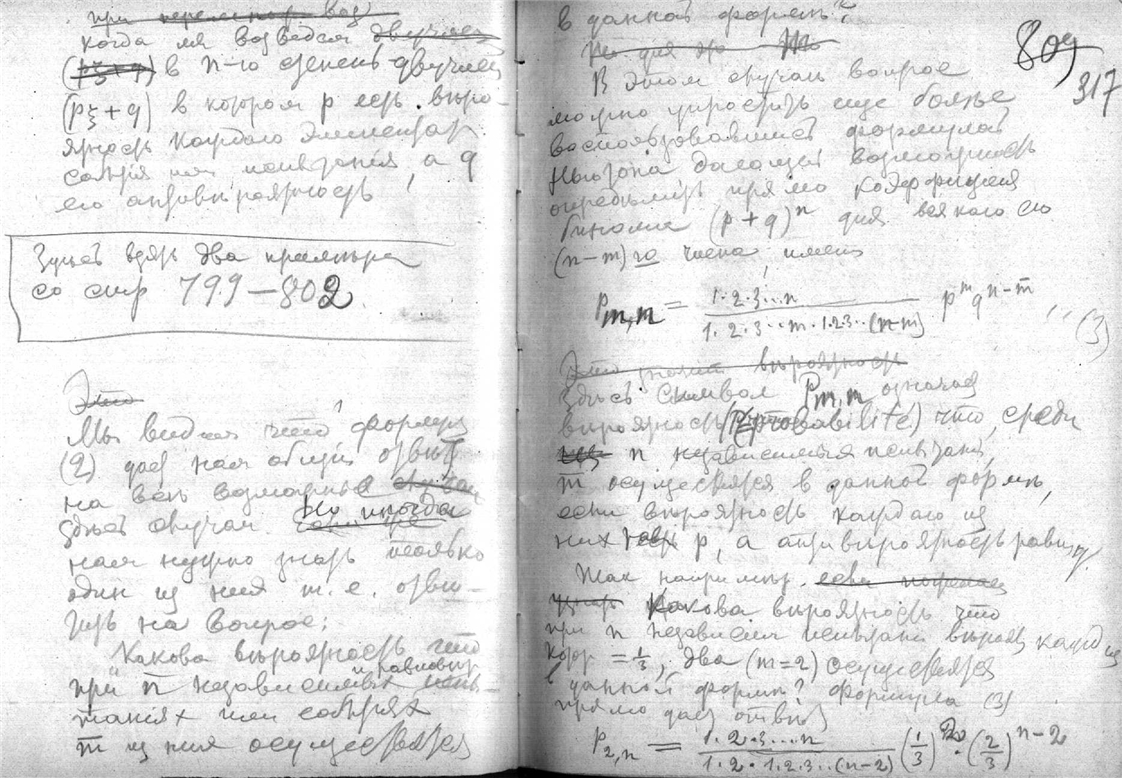 при
когда мы возведем двучлен
(pξ+q) в n-ю степень двучлен
(pξ+q) в котором p есть вѣро-
ятность каждаго элементар
событiя или испытанiя, а q
его антивѣроятность
Здѣсь взять два примѣра
со стр 799—802
Это
Мы видим что формула
(2) дает нам общiй отвѣт
на всѣ возможные случаи
здѣсь случаи Но иногда
нам нужно знать только
один из них т. е. отвѣ-
тить на вопрос:
Какова вѣроятность что
при n независимых и равновѣр
испытанiях или событiях
m из них осуществятся
в данной формѣ?
809
317
В этом случаѣ вопрос
можно упростить еще болѣе
воспользовавшись формулой
Ньютона дающей возможность
опредѣлить прямо коэффицiент
бинома (p+q)ⁿ для всякаго его
(n−m)го члена, имеем
P m,n = 1·2·3...n / 1·2·3...m·1·2·3...(n-m) pᵐ qⁿ⁻ᵐ ... (3)
Это значит вѣроятность
Здѣсь символ P m,n означает
вѣроятность (probabilité) что, среди
n независимых испытанiй,
m осуществятся в данной формѣ,
если вѣроятность каждаго из
них p, а антивѣроятность равна q.
Так например. если
Какова вѣроятность что
при n независим испытанiй вѣроят кажд из
котор = 1/3, два (m=2) осуществятся
в данной формѣ? Формула (3)
прямо дает отвѣт
P 2,n = 1·2·3...n / 1·2·1·2·3...(n-2) (1/3)²·(2/3)ⁿ⁻²